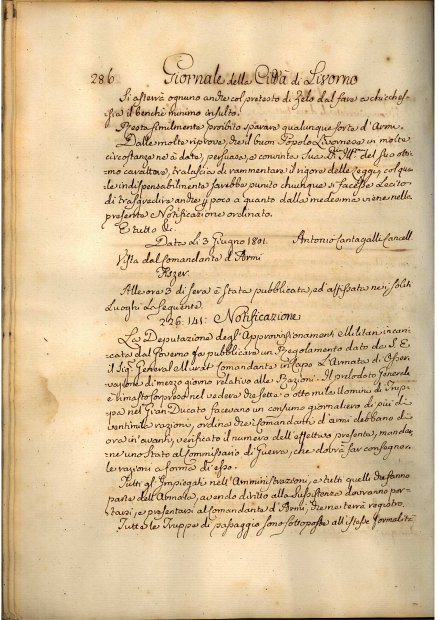 286. Giornale della Città di Livorno
Si asterrà ognuno anche col pretesto di zelo dal fare a chicches-
sia il benchè minimo insulto.
Resta similmente proibito sparare qualunque sorte d'Armi.
Dalle molte riprove, che il buon Popolo Livornese in molte
circostanze ne à date, persuasa, e convinta Sua Sig. Ill. del suo otti-
mo carattere, tralascia di rammentare il rigore delle Leggi, col qua-
le indispensabilmente sarebbe punito chiunque si facesse lecito
di trasgredire anche p poco a quanto dalla medesima viene nella
presente Notificazione ordinato.
E tutto &c.
Data Li 3 Giugno 1801. Antonio Cantagalli Cancell.
Vista dal Comandante d'Armi
Alle ore 3 di sera è stata pubblicata, ed affissata nei soliti
Luoghi La seguente
226. 141: Notificazione
La Deputazione degl'Approvvisionamenti Militari incari-
cata dal Governo fa pubblicare un Regolamento dato da S. E.
il Sig. General Murat Comandante in Capo L'Armata d'Osser-
vazione di mezzo giorno relativo alle Razioni. Il prelodato Generale
è rimasto sorpreso nel vedere che sette o otto mila Uomini di Trup-
pa nel Gran Ducato facevano un consumo giornaliero di più di
ventimila razioni, ordina che i Comandanti d'armi debbano d'
ora in'avanti, verificato il numero dell'effettivo presente, mandar-
ne uno Stato al Commissario di Guerra, che dovrà far consegnar
le razioni a forma di esso.
Tutti gl'Impiegati nell'Amministrazioni, e tutti quelli che fanno
parte dell'Armata, avendo diritto alla sussistenza dovranno por-
tarsi, e presentarsi al Comandante d'Armi, che ne terrà registro.
Tutte le Truppe di passaggio sono sottoposte all'istesse formalità